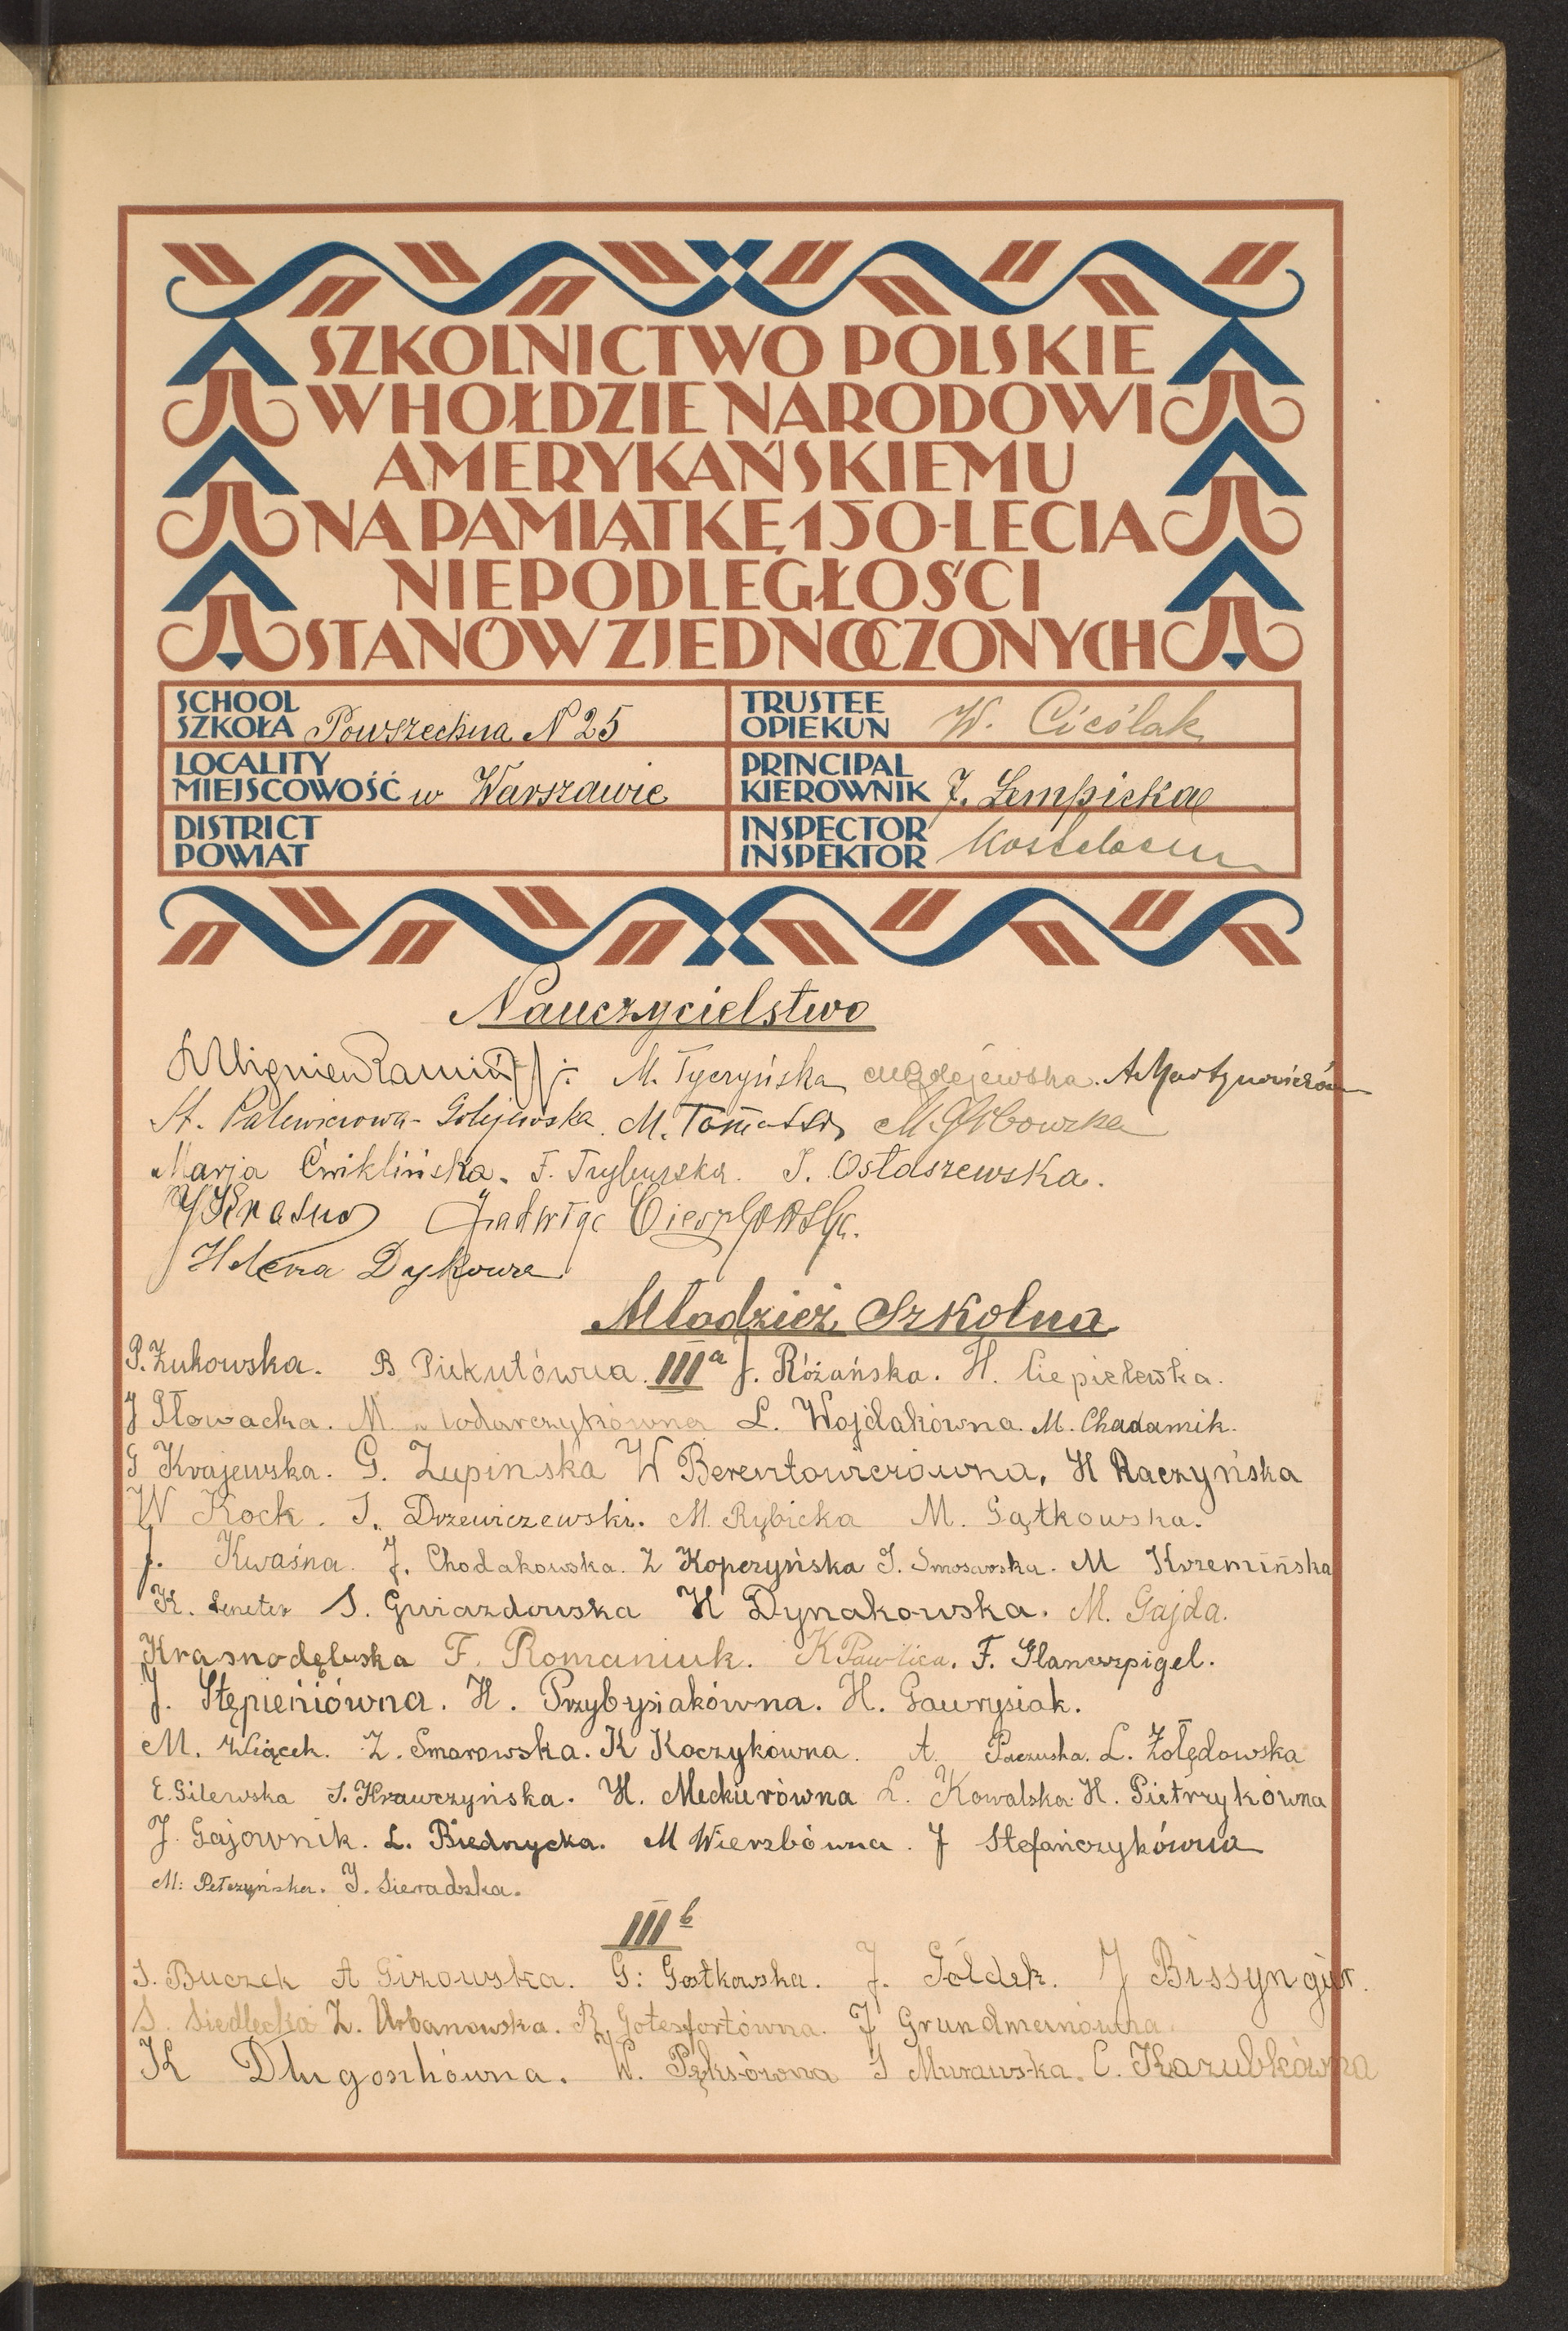 SZKOLNICTWO POLSKIE
W HOŁDZIE NARODOWI
AMERYKAŃSKIEMU
NA PAMIĄTKĘ 150-LECIA
NIEPODLEGŁOŚCI
STANÓW ZJEDNOCZONYCH
SCHOOL
SZKOŁA Powszechna N 25
TRUSTEE
OPIEKUN W. Cieślak
LOCALITY
MIEJSCOWOŚĆ w Warszawie
PRINCIPAL
KIEROWNIK J. Lempicka
DISTRICT
POWIAT
INSPECTOR
INSPEKTOR
Nauczycielstwo
M. Tyczyńska
St. Golejewska M.
Marja Ćwiklińska. F. J. Ostaszewska.
Jadwiga
Helena Dytkowa
Młodzież Szkolna
P. Żukowska. B Piekutówna. IIIa J. Różańska. H. Ciepielewska.
J Słowacka. M. L. Wojdakówna. M. Chadamik.
G Krajewska. G. Zupinska W Berentowiczówna, H Raczyńska
W Kock. J. Drzewiczewski. M. Rybicka M. Gątkowska.
J. Kwaśna. J. Chodakowska. Z Kopczyńska J. Smosarska. M Krzemińska
K. Seneter S. Gwiazdowska H Dynakowska. M. Gajda.
Krasnodębska F. Romaniuk. K Pawlica. F. Glancszpigel.
J. Stępieniówna. H. Przybysiakówna. H. Gawrysiak.
M. Wiącek. Z. Smarowska. K Koczykówna. A. Paczuska. L. Żołędowska
E. Gilewska S. Krawczyńska. H. Meckierówna L. Kowalska H. Pietrzykówna
J. Gajownik. L. Biednycka. M Wierzbówna. J Stefańczykówna
M: Pełczyńska. J. Sieradzka.
IIIb
S. Buczek A Gizowska. G: Gostkowska. J. Gołdek. J Bissyngier.
S. Siedlecka Z. Urbanowska. R. Gotesfortówna. J Grundmanówna.
K Długoszkówna. W. Pęksówna S Murawska. C. Kazubkówna